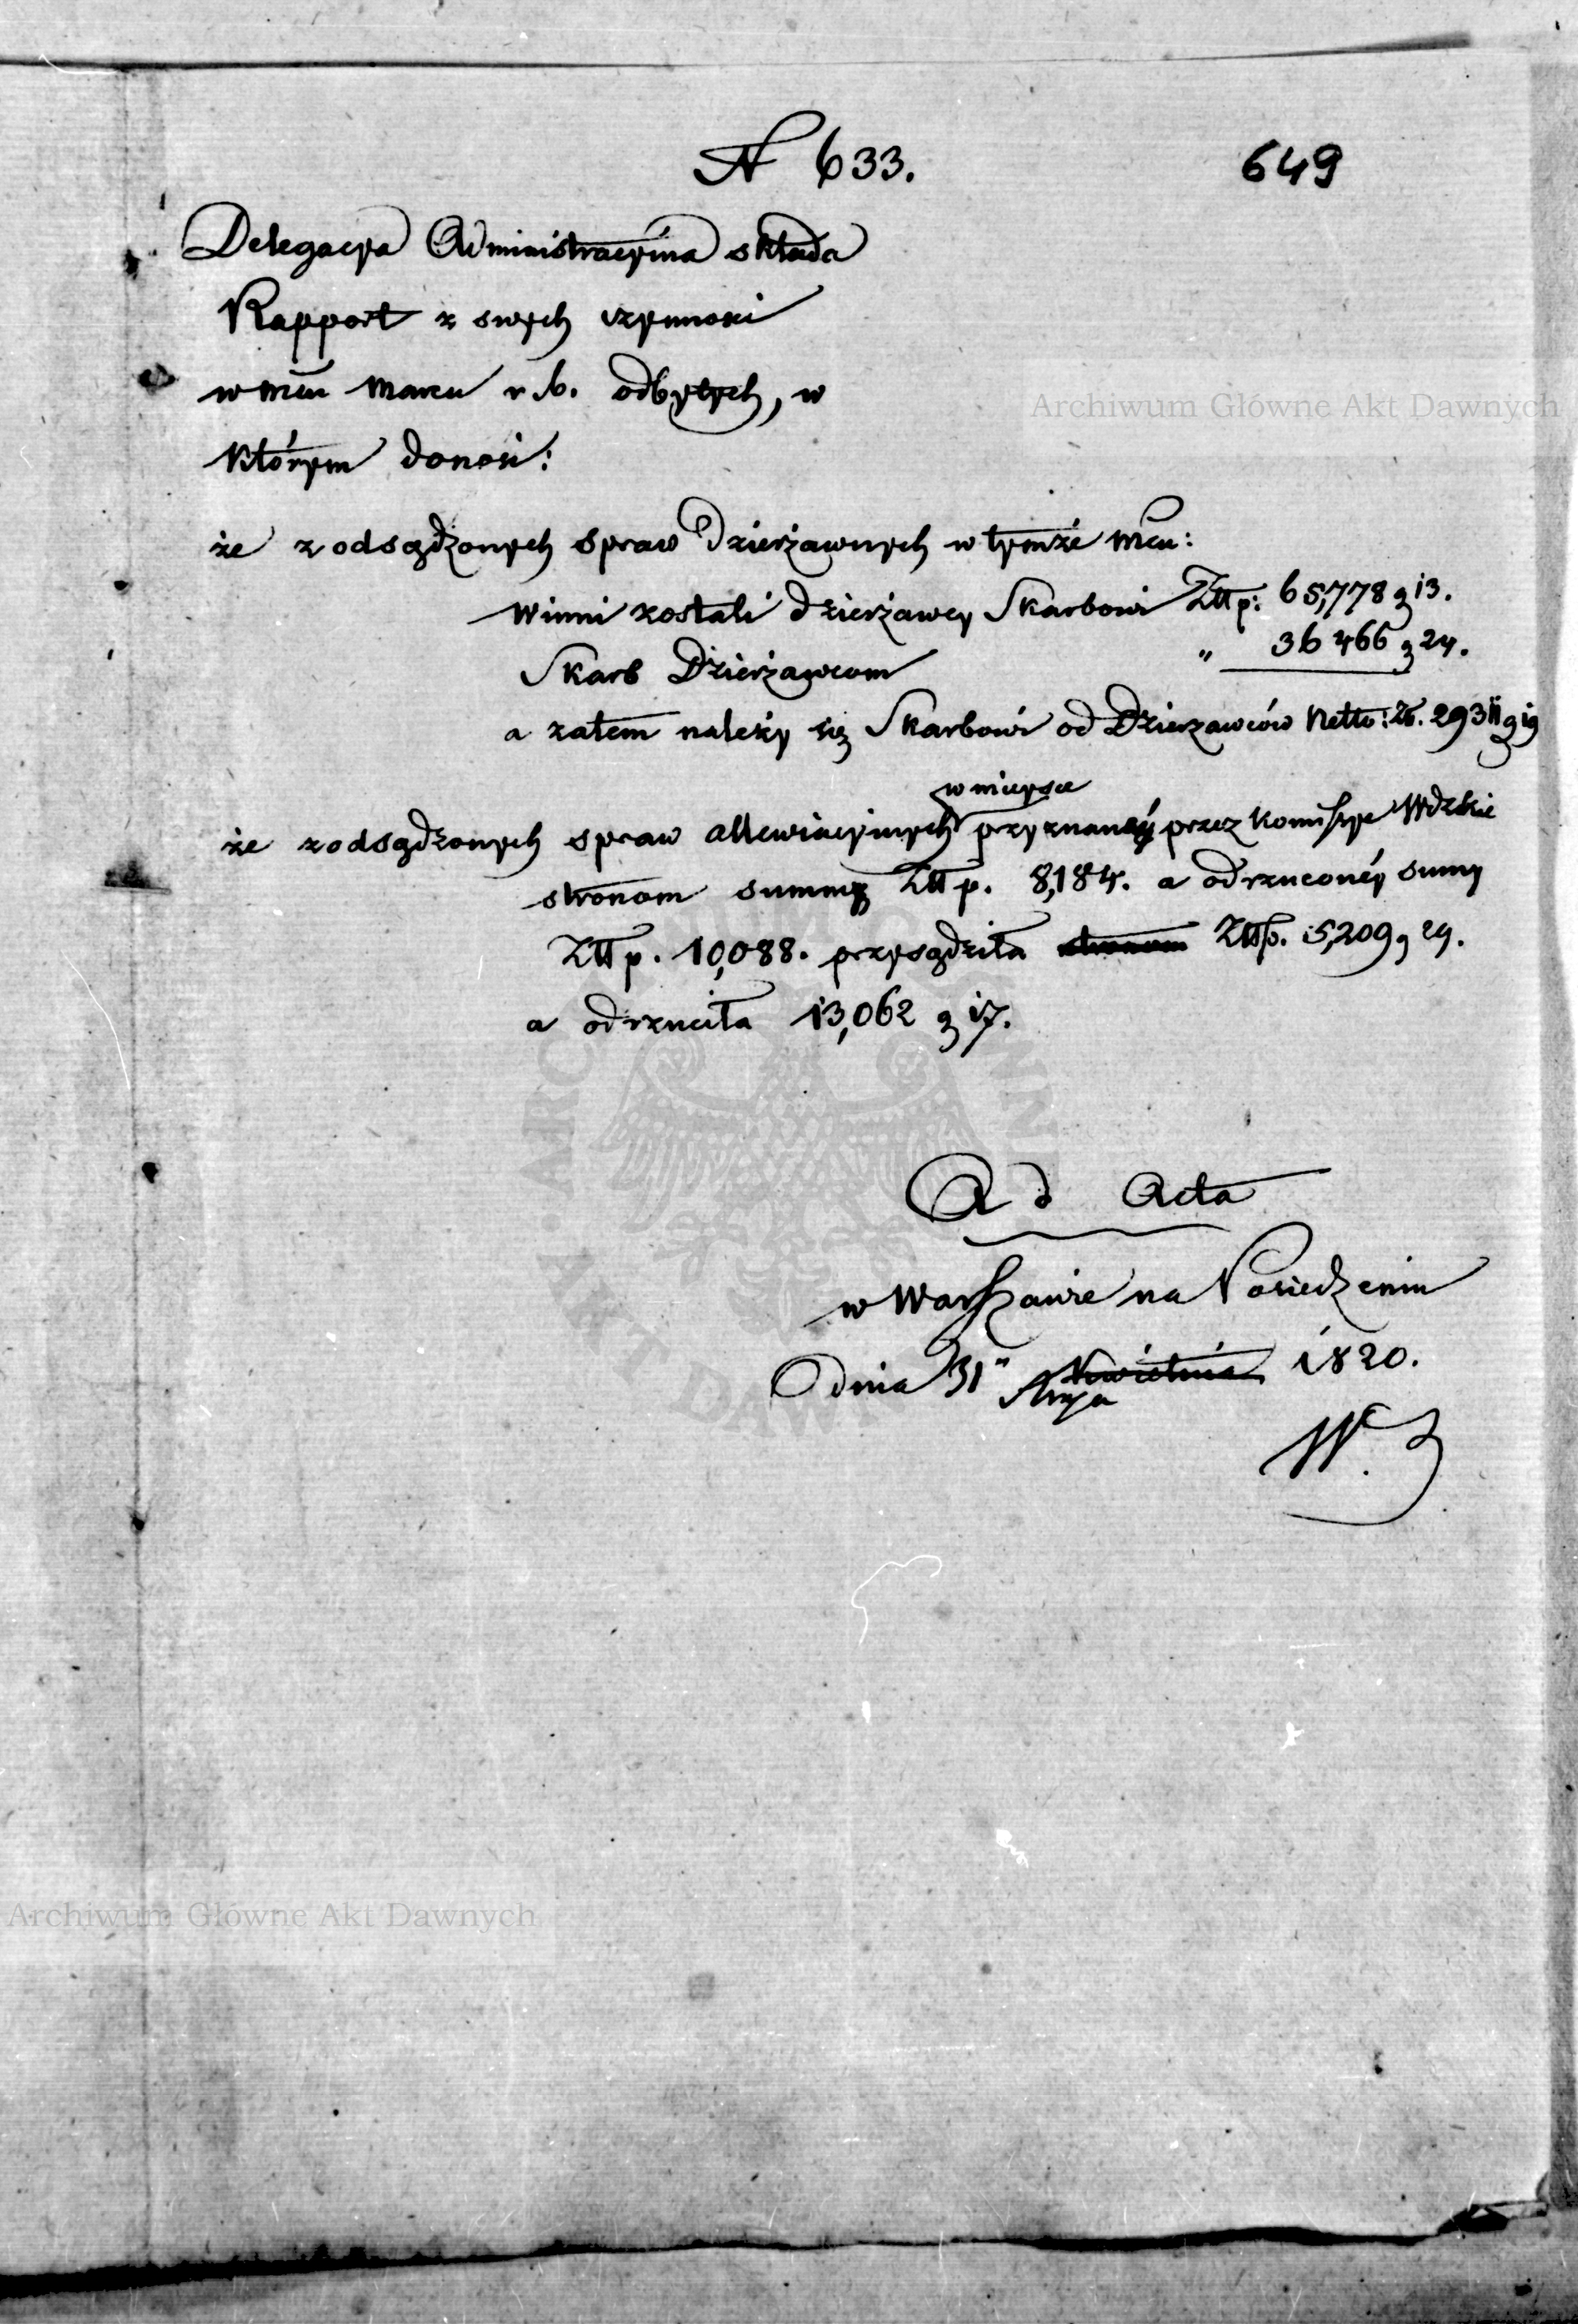 N 633.
649
Delegacya Administracyina składa
Rapport z swych czynnosci
w mcu Marcu r. b. odbytych, w
którym donosi:
Archiwum Główne Akt Dawnych
że z odsądzonych spraw Dzierżawnych w tymże mcu:
Winni zostali dzierżawcy Skarbowi Złłp: 65,778 g 13.
Skarb Dzierżawcom " 36 466 g 24.
a zatem należy się Skarbowi od Dzierżawców Netto: Zł. 29311 g 19
w mieysce
że z odsądzonych spraw allewiacyinych przyznanéy przez Kommissye Wdzkie
stronom summy Złłp. 8,184. a odrzuconéy sumy
Złłp. 10,088. przysądziła stronom Złłp. 5,209 g 29.
a odrzuciła 13,062 g 17.
Ad Acta
w Warszawie na Posiedzeniu
dnia 31" Kwietnia 1820.
Maja
W.
Archiwum Główne Akt Dawnych